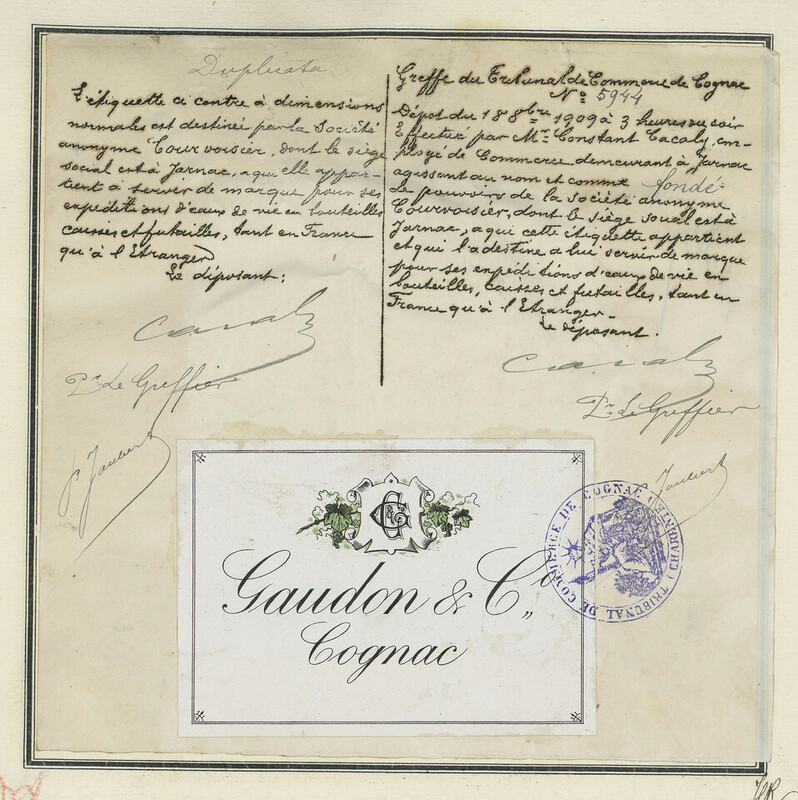 Duplicata
L'étiquette ci contre à dimensions
normales est destinée par la Société
anonyme Courvoisier, dont le siège
social est à Jarnac, a qui elle appar-
tient à servir de marque pour ses
expéditions d'eaux de vie en bouteilles
caisses et futailles, tant en France
qu'à l'Etranger
Le déposant:
Pr Le Greffier
P. Jaubert
Greffe du Tribunal de Commerce de Cognac
No 5944
Dépot du 18 8bre 1909 à 3 heures du soir
Effectué par Mr Constant Cacaly, em-
ployé de Commerce demeurant à Jarnac
agissant au nom et comme fondé
de pouvoirs de la Société anonyme
Courvoisier, dont le siège social est à
Jarnac, a qui cette étiquette appartient
et qui l'a destine a lui servir de marque
pour ses expéditions d'eaux de vie en
bouteilles, caisses et futailles, tant en
France qu'à l'Etranger-
Le déposant.
Pr Le Greffier
Jaubert
Gaudon & Co
Cognac
TRIBUNAL DE COMMERCE DE COGNAC (CHARENTE)